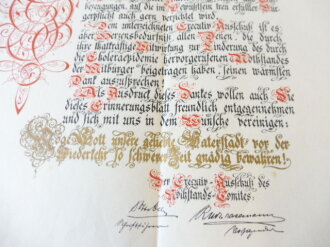 bezeugungen, auf die im Bewußtsein treu erfüllter Bür=
gerpflicht auch gern verzichtet wird.
Dem unterzeichneten Executiv-Ausschuß ist es
aber Herzensbedürfniß allen Denen, welche durch
ihre thatkräftige Mitwirkung zur Linderung des durch
die Choleraepidemie hervorgerufenen Nothstandes
der Mitbürger beigetragen haben, seinen wärmsten
Dank auszusprechen!
Als Ausdruck dieses Dankes wollen auch Sie
dieses Erinnerungsblatt freundlich entgegennehmen
und sich mit uns in dem Wunsche vereinigen:
Möge Gott unsere geliebte Vaterstadt vor der
Wiederkehr so schwerer Zeit gnädig bewahren!
Der Executiv-Ausschuß des
Nothstands-Comités:
Schriftführer
Vorsitzender